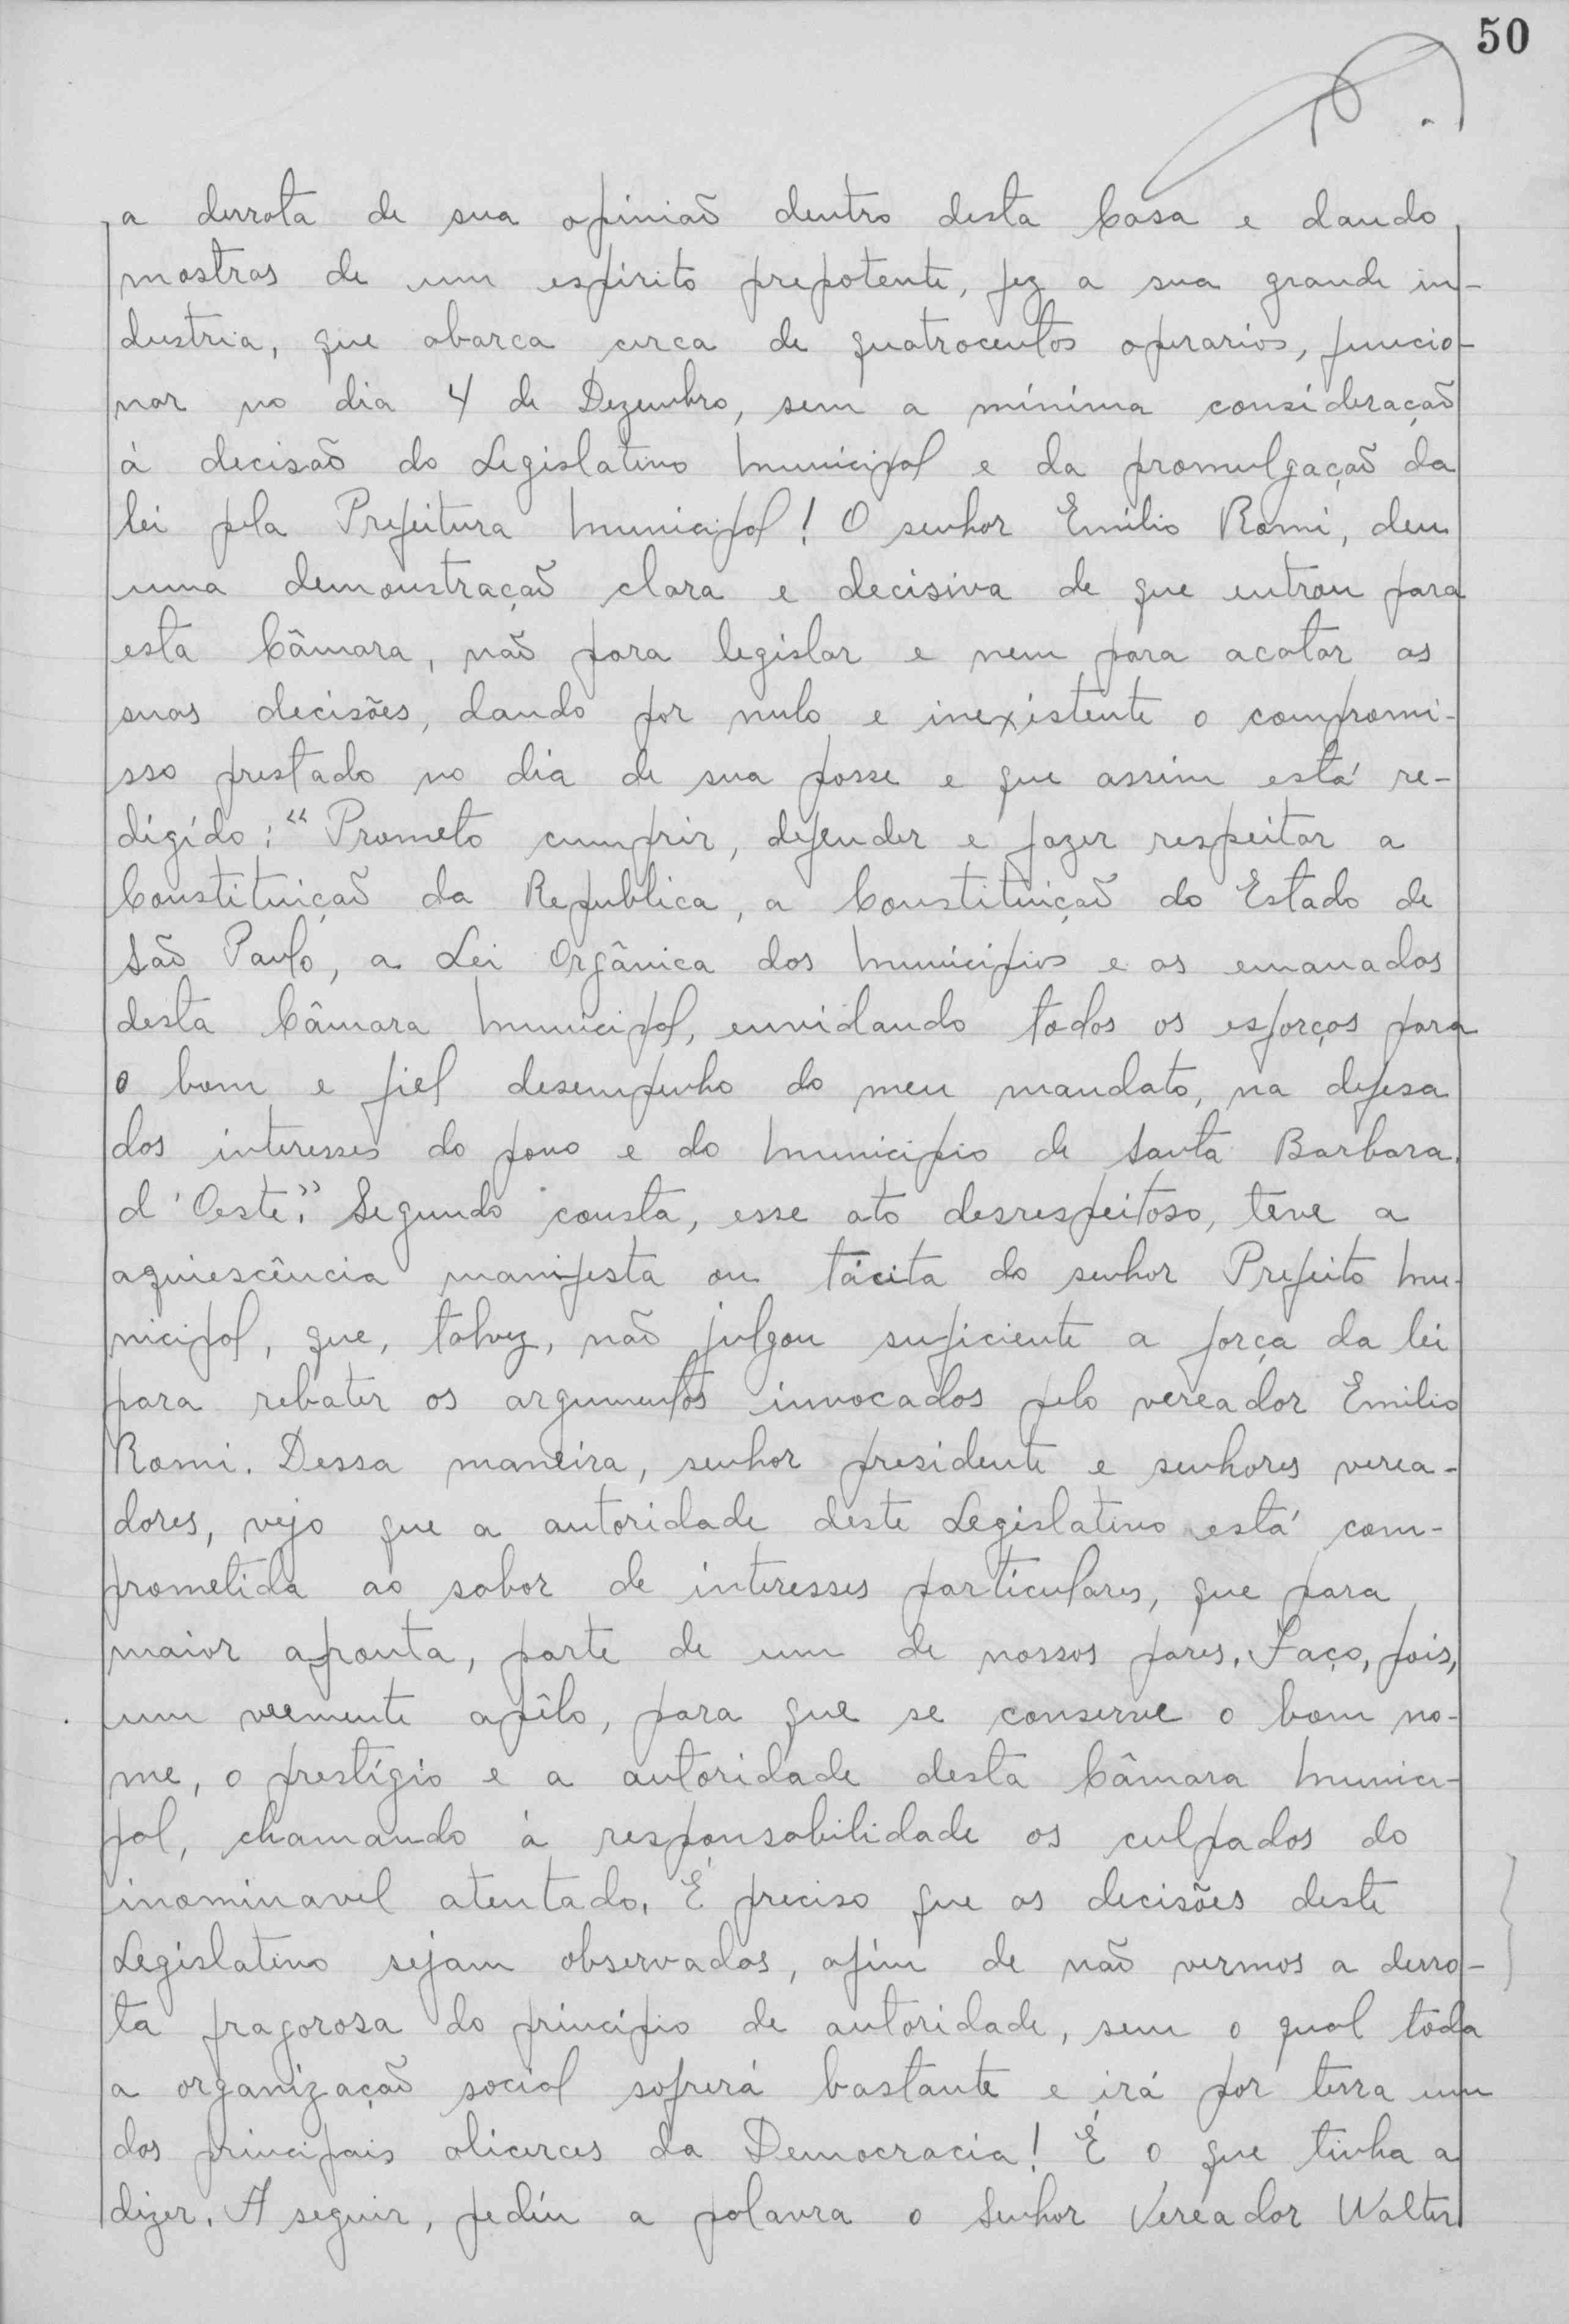 50
a derrota de sua opinião dentro desta Casa e dando
mostras de um espírito prepotente, fez a sua grande in-
dustria, que abarca cerca de quatrocentos operarios, funcio-
nar no dia 4 de Dezembro, sem a mínima consideração
á decisão do Legislativo Municipal e da promulgação da
lei pela Prefeitura Municipal! O senhor Emilio Romi, deu
uma demonstração clara e decisiva de que entrou para
esta Câmara, não para legislar e nem para acatar as
suas decisões, dando por nulo e inexistente o compromi-
sso prestado no dia de sua posse e que assim está re-
digido: "Prometo cumprir, defender e fazer respeitar a
Constituição da Republica, a Constituição do Estado de
São Paulo, a Lei Orgânica dos Municipios e as emanadas
desta Câmara Municipal, envidando todos os esforços para
o bom e fiel desempenho do meu mandato, na defesa
dos interesses do povo e do Municipio de Santa Barbara
d'Oeste." Segundo consta, esse ato desrespeitoso, teve a
aquiescência manifesta ou tácita do senhor Prefeito Mu-
nicipal, que, talvez, não julgou suficiente a força da lei
para rebater os argumentos invocados pelo vereador Emilio
Romi. Dessa maneira, senhor presidente e senhores verea-
dores, vejo que a autoridade deste Legislativo está com-
prometida ao sabor de interesses particulares, que para
maior afronta, parte de um de nossos pares. Faço, pois,
um veemente apêlo, para que se conserve o bom no-
me, o prestígio e a autoridade desta Câmara Munici-
pal, chamando á responsabilidade os culpados do
inominavel atentado. É preciso que as decisões deste
Legislativo sejam observadas, afim de não vermos a derro-
ta fragorosa do princípio de autoridade, sem o qual toda
a organização social sofrerá bastante e irá por terra um
dos principais alicerces da Democracia! É o que tinha a
dizer. A seguir, pediu a palavra o Senhor Vereador Walter